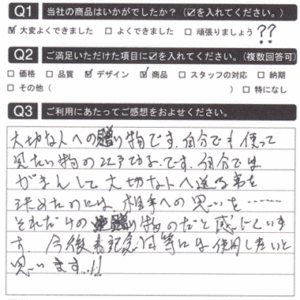 Q1 当社の商品はいかがでしたか?(☑を入れてください。)
☑大変よくできました □よくできました □頑張りましょう??
Q2 ご満足いただけた項目に☑を入れてください。(複数回答可)
□価格 □品質 ☑デザイン ☑商品 □スタッフの対応 □納期
□その他( ) □特になし
Q3 ご利用にあたってご感想をおよせください。
大切な人への贈り物です。自分でも使って
見たい物の1つです。自分では
がまんして大切な人へ送る事を
決めたのには、相手への思いを……
それだけの贈り物のだと感じています
す。今後も記念日等には使用したいと
思います!!